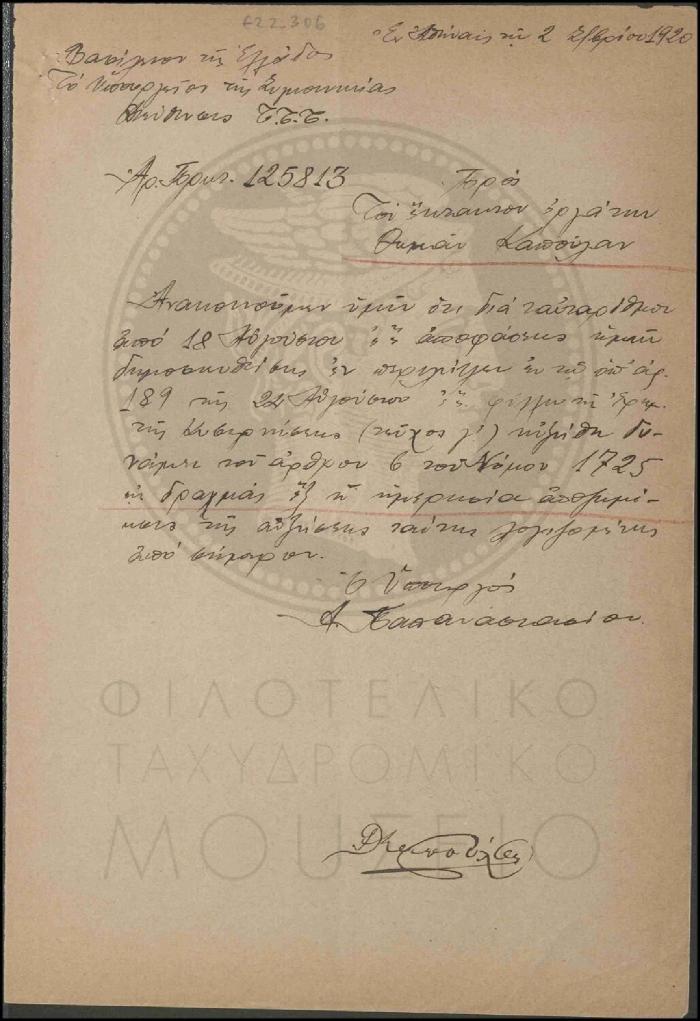 622_306
Ἐν Ἀθήναις τῇ 2 Σ/βρίου 1920
Βασίλειον τῆς Ἑλλάδος
Τὸ Ὑπουργεῖον τῆς Συγκοινωνίας
Διεύθυνσις Τ.Τ.Τ.
Ἀρ. Πρωτ. 125813
Πρὸς
Τὸν ἔκτακτον ἐργάτην
Θωμᾶν Καπούλαν
Ἀνακοινοῦμεν ὑμῖν ὅτι διὰ ταυταρίθμου
ἀπὸ 18 Αὐγούστου ἐ.ἔ. ἀποφάσεως ἡμῶν
δημοσιευθείσης ἐν περιλήψει ἐν τῷ ὑπ' ἀρ.
189 τῆς 22 Αὐγούστου ἐ.ἔ. φύλλῳ τῆς Ἐφημ.
τῆς Κυβερνήσεως (τεῦχος γ') ηὐξήθη δυ-
νάμει τοῦ ἄρθρου 6 τοῦ Νόμου 1725
εἰς δραχμὰς ἓξ ἡ ἡμερησία ἀποζημί-
ωσις τῆς αὐξήσεως ταύτης λογιζομένης
ἀπὸ σήμερον.
Ὁ Ὑπουργὸς
Α. Παπαναστασίου
ΦΙΛΟΤΕΛΙΚΟ
ΤΑΧΥΔΡΟΜΙΚΟ
ΜΟΥΣΕΙΟ